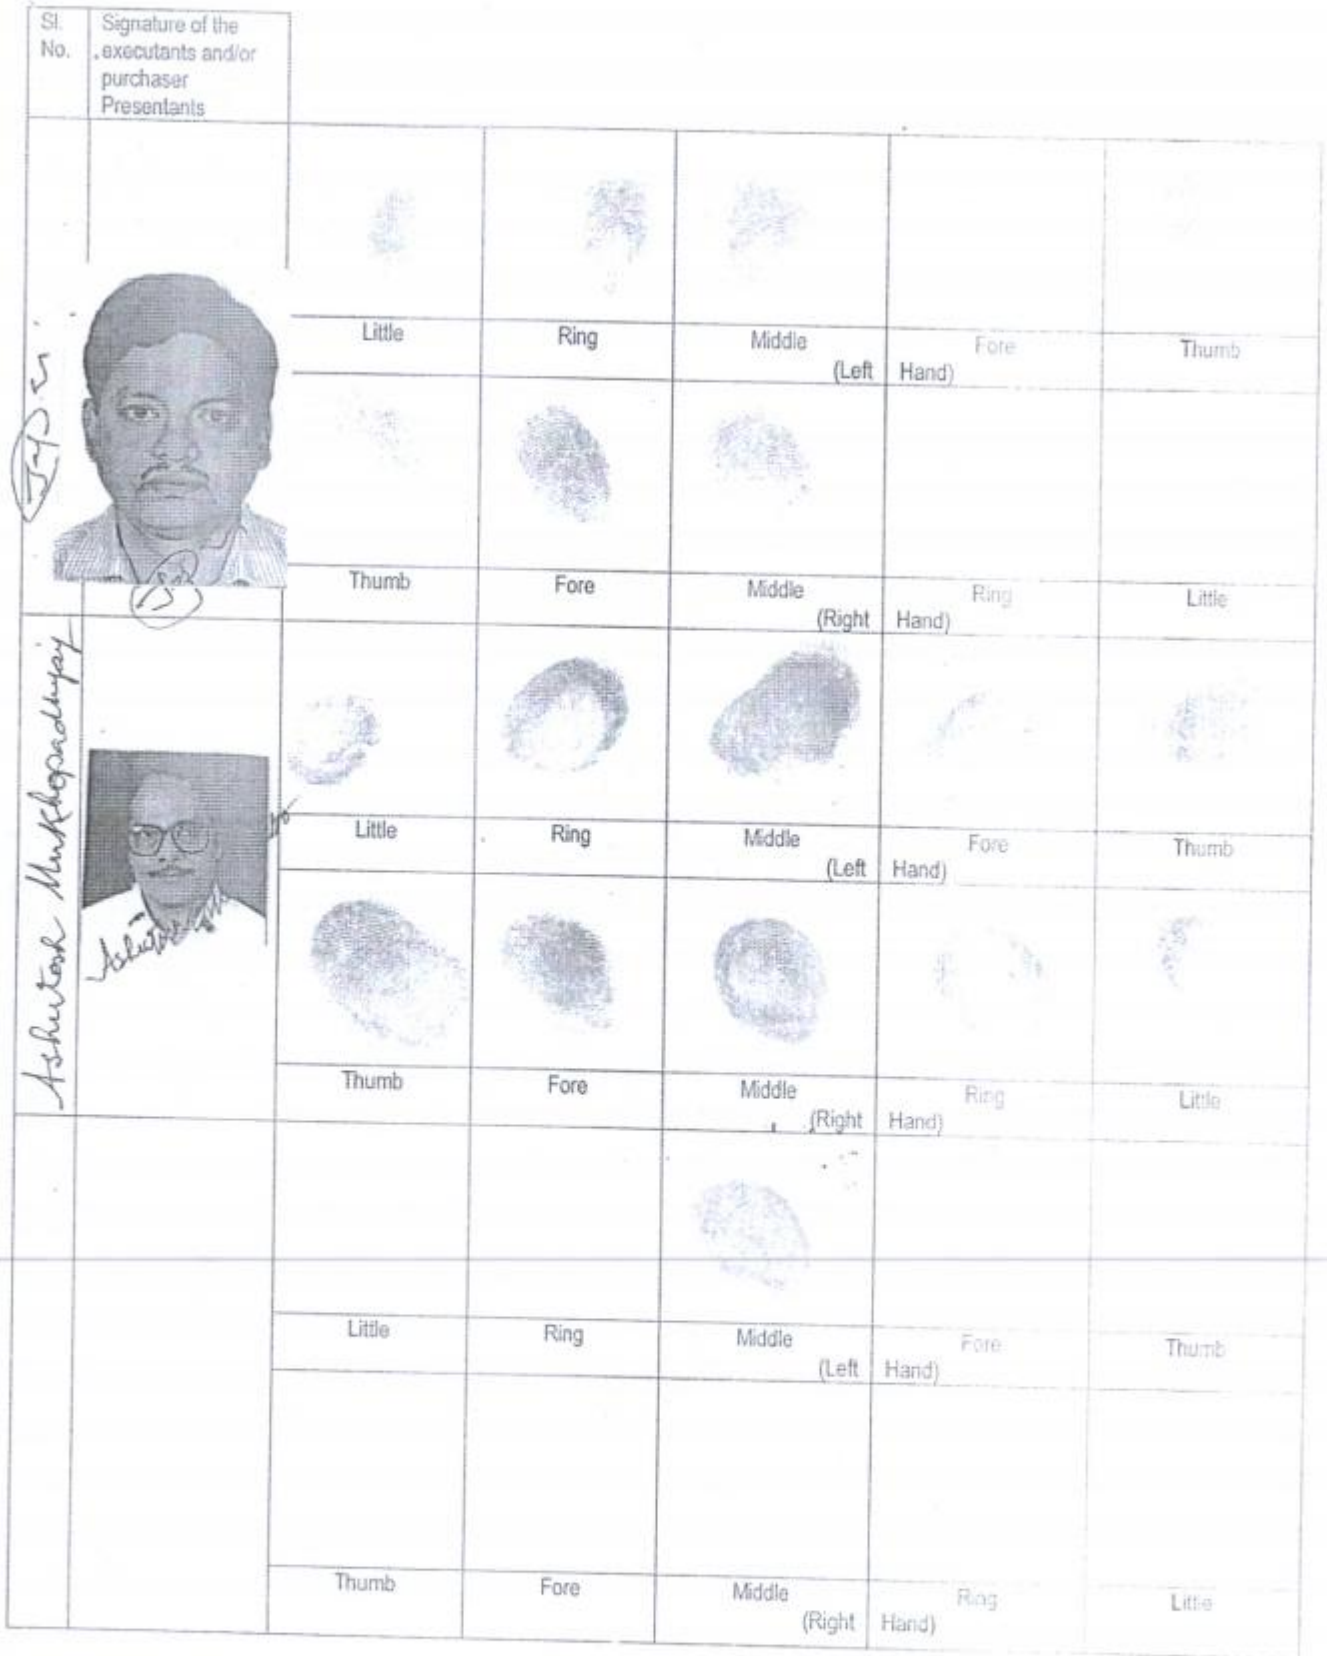 Sl.
No.
Signature of the
executants and/or
purchaser
Presentants
Little Ring Middle Fore Thumb
(Left Hand)
Thumb Fore Middle Ring Little
(Right Hand)
Ashutosh Mukhopadhyay
Ashutosh
Little Ring Middle Fore Thumb
(Left Hand)
Thumb Fore Middle Ring Little
(Right Hand)
Little Ring Middle Fore Thumb
(Left Hand)
Thumb Fore Middle Ring Little
(Right Hand)